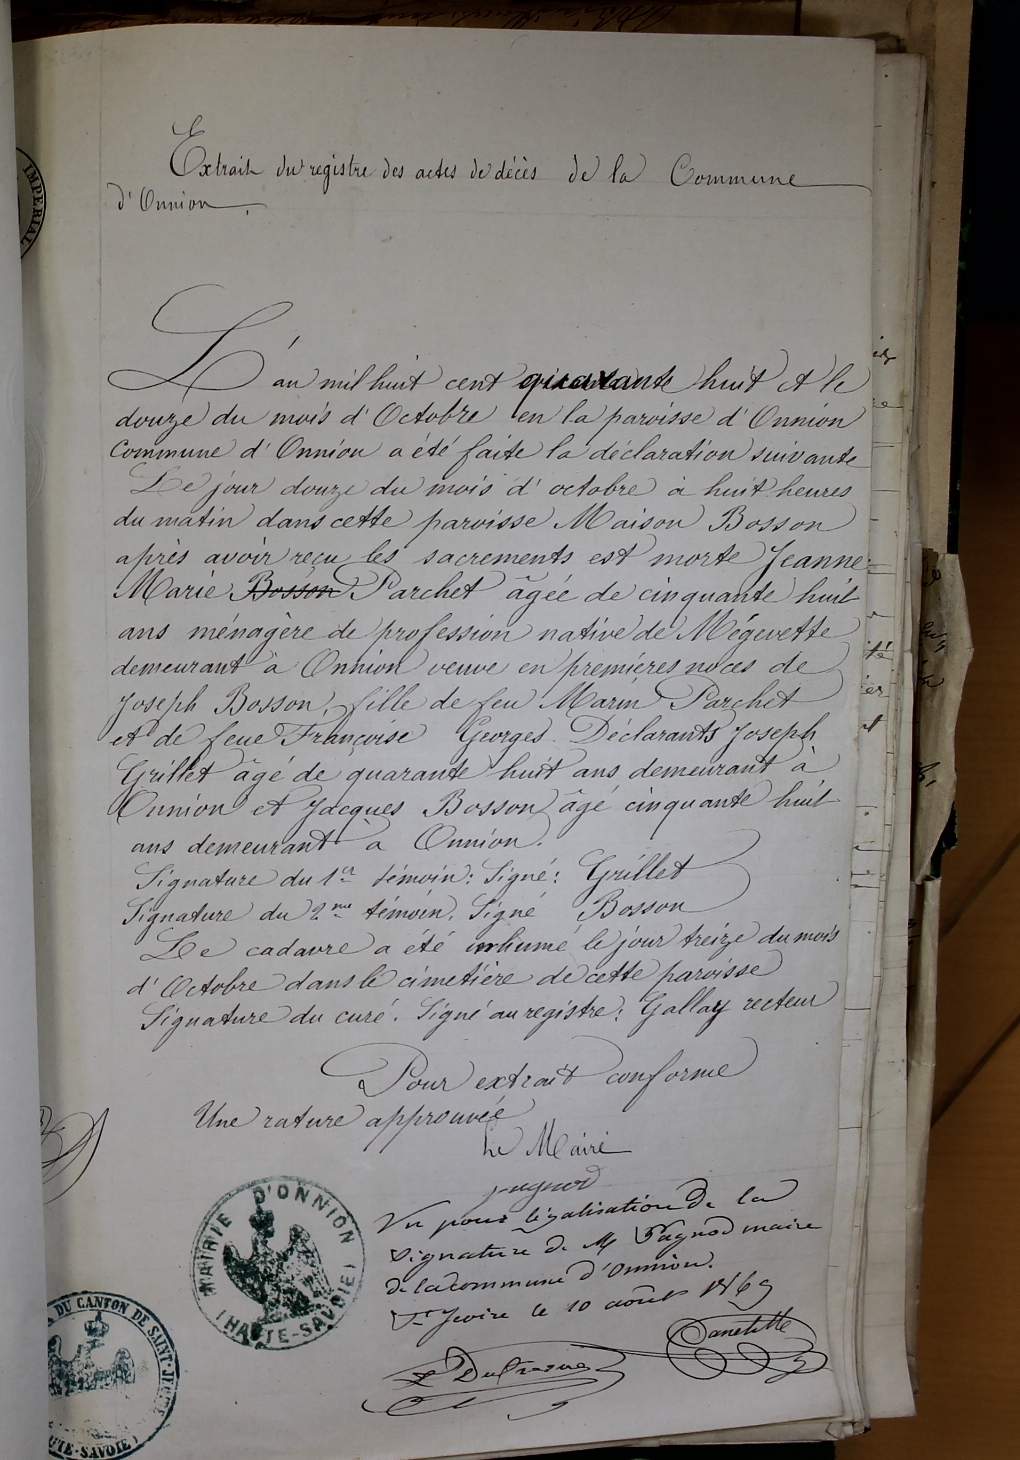 Extrait du registre des actes de décès de la Commune
d'Onnion.
L'an mil huit cent quarante huit et le
douze du mois d'Octobre en la paroisse d'Onnion
Commune d'Onnion a été faite la déclaration suivante
Le jour douze du mois d'octobre à huit heures
du matin dans cette paroisse Maison Bosson
après avoir reçu les sacrements est morte Jeanne
Marie Bosson Parchet âgée de cinquante huit
ans ménagère de profession native de Mégevette
demeurant à Onnion veuve en premières noces de
Joseph Bosson, fille de feu Marin Parchet
et de feue Françoise Georges. Déclarants Joseph
Grillet âgé de quarante huit ans demeurant à
Onnion et Jacques Bosson âgé cinquante huit
ans demeurant à Onnion.
Signature du 1er témoin: Signé: Grillet
Signature du 2me témoin. Signé Bosson
Le cadavre a été inhumé le jour treize du mois
d'Octobre dans le cimetière de cette paroisse
Signature du curé. Signé au registre: Gallay recteur
Pour extrait conforme
Une rature approuvée
Le Maire
pagnod
Vu pour législation de la
signature de M Pagnod maire
de la commune d'Onnion.
St Jeoire le 10 août 1869
MAIRIE D'ONNION
(HAUTE-SAVOIE)
DU CANTON DE SAINT-JEOIRE
UTE-SAVOIE)
IMPERIAL